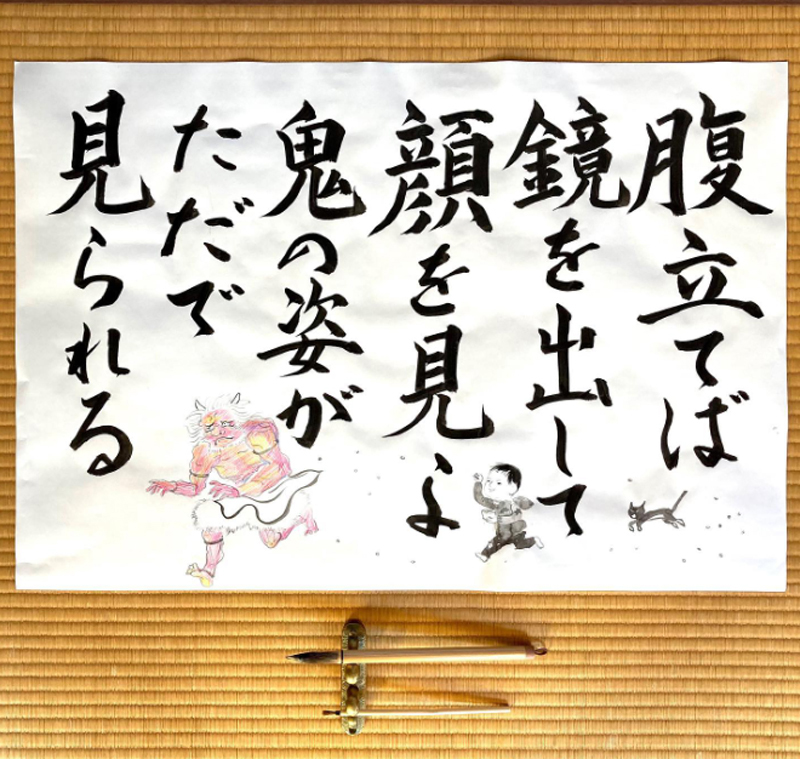 腹立てば
鏡を出して
顔を見よ
鬼の姿が
ただで
見られる